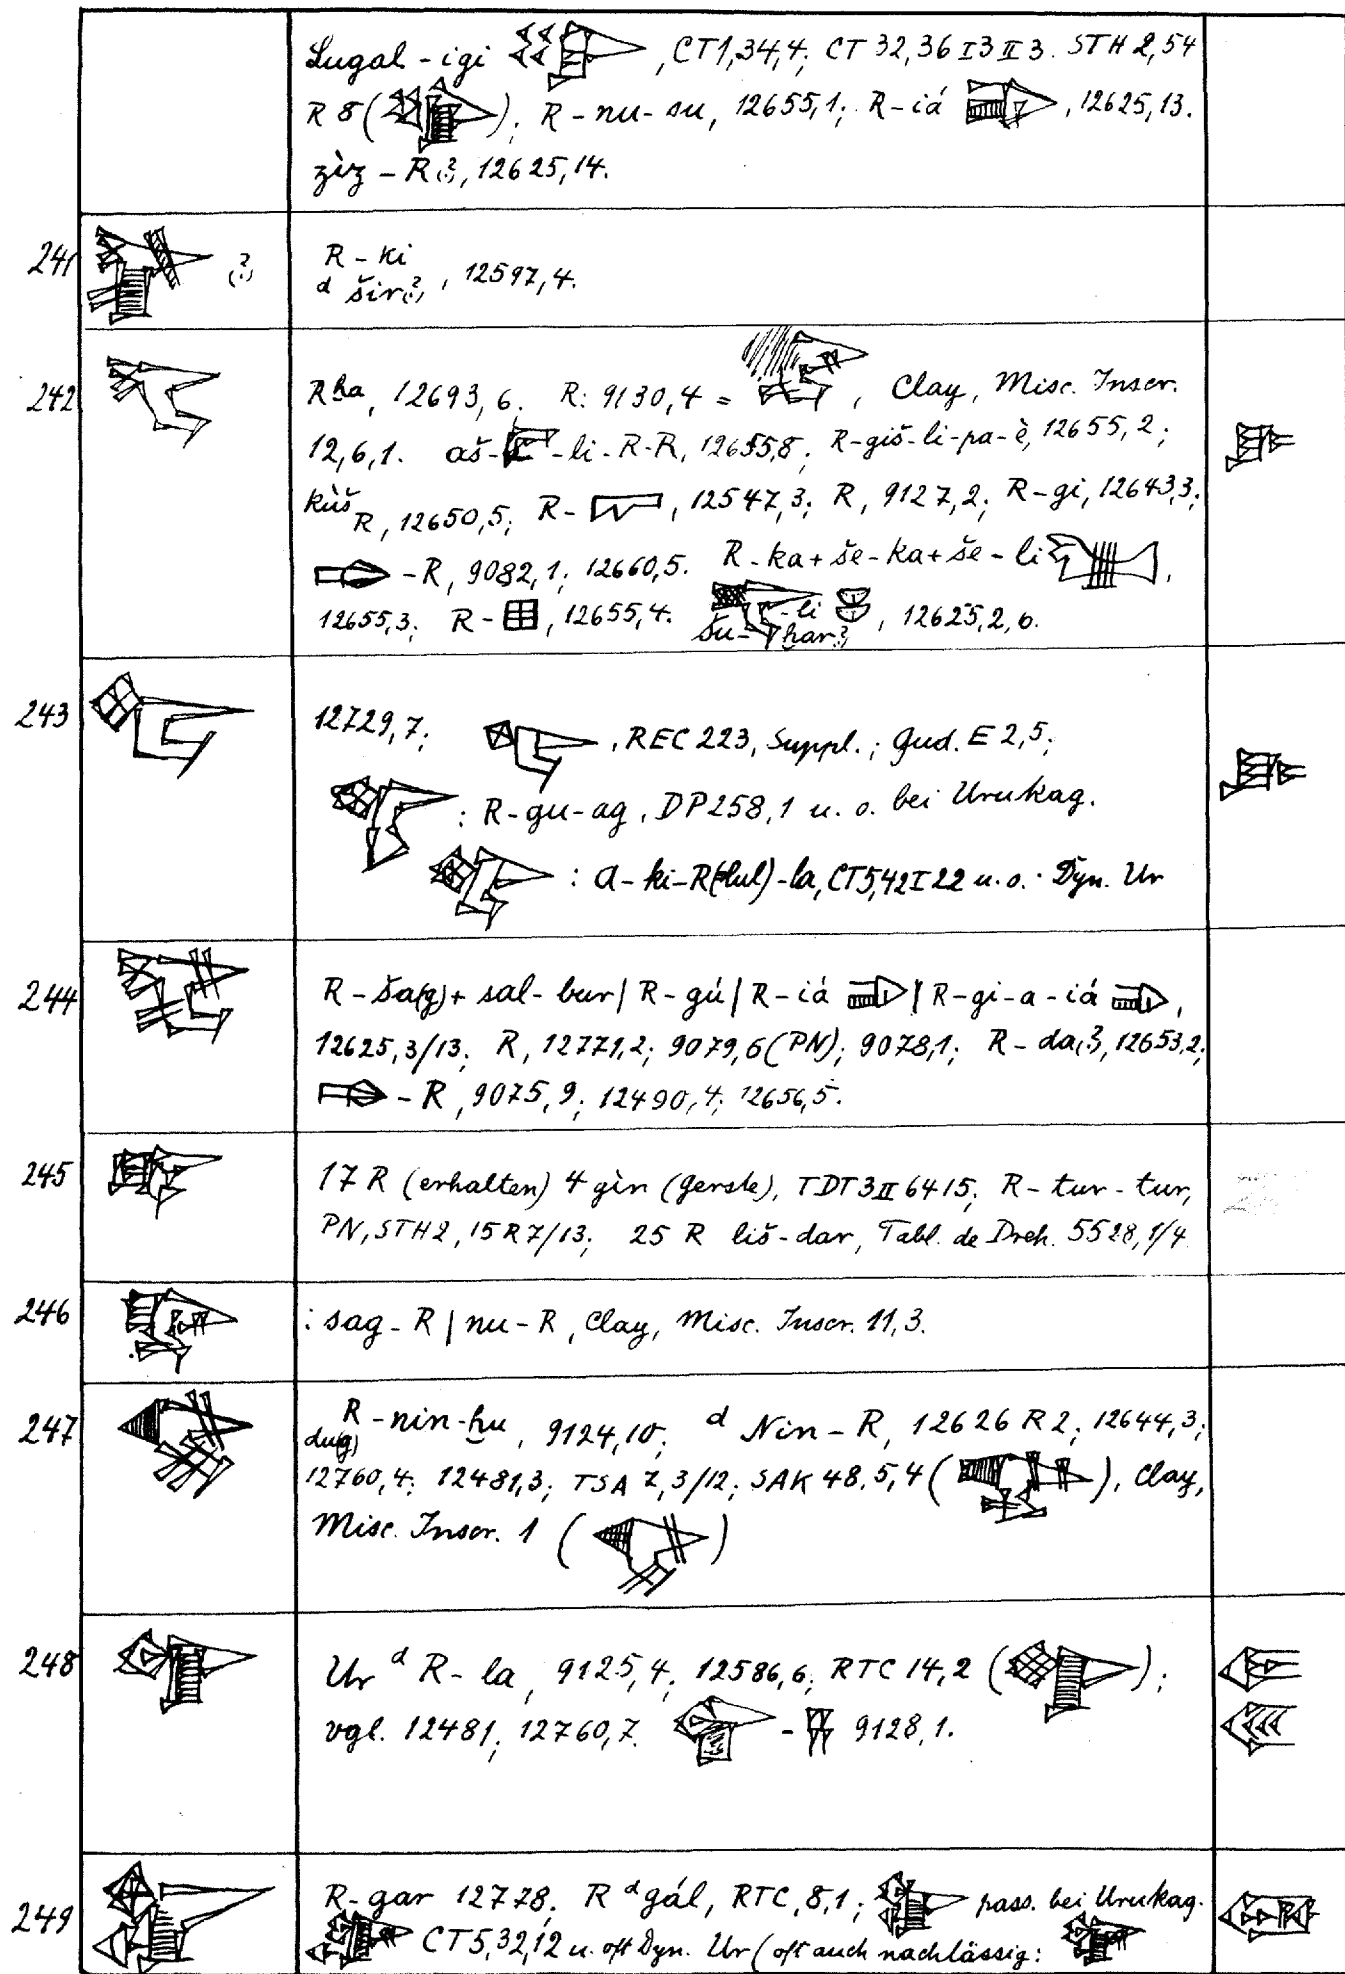 Lugal - igi , CT1,34,4; CT 32,36 I 3 II 3. STH 2,54
R 8 ( ); R - nu - su, 12655,1; R - iá , 12625,13.
zìz - R(?), 12625,14.
241 (?) R - ki
d šir(?), 12597,4.
242 R ḫa, 12693,6. R: 9130,4 = , Clay, Misc. Inscr.
12,6,1. aš - - li - R - R, 12655,8; R - giš - li - pa - è, 12655,2;
kùš R, 12650,5; R - , 12547,3; R, 9127,2; R - gi, 12643,3;
- R, 9082,1; 12660,5. R - ka + še - ka + še - li ,
12655,3; R - , 12655,4. - li , 12625,2,6.
šu - ḫar(?)
243 12729,7; , REC 223, Suppl.; Gud. E 2,5;
: R - gu - ag, DP 258,1 u. o. bei Urukag.
: a - ki - R( )- la, CT5,42 I 22 u. o. Dyn. Ur
244 R - ša(g) + sal - bur | R - gú | R - iá | R - gi - a - iá ,
12625,3/13; R, 12771,2; 9079,6 (PN); 9078,1; R - da(?), 12653,2;
- R, 9075,9; 12490,4; 12656,5.
245 17 R (erhalten) 4 gìn (Gerste), TDT 3 II 6415; R - tur - tur,
PN, STH 2, 15 R 7/13; 25 R liš - dar, Tabl. de Dreh. 5528,1/4
246 : sag - R | nu - R, Clay, Misc. Inscr. 11,3.
247 R - nin - ḫu, 9124,10; d Nin - R, 12626 R 2; 12644,3;
du(g)
12760,4; 12481,3; TSA 7,3/12; SAK 48,5,4 ( ), Clay,
Misc. Inscr. 1 ( )
248 Ur d R - la, 9125,4; 12586,6; RTC 14,2 ( );
vgl. 12481; 12760,7. - 9128,1.
249 R - gar 12778; R d gál, RTC, 8,1; pass. bei Urukag.
CT 5,32,12 u. oft Dyn. Ur (oft auch nachlässig: